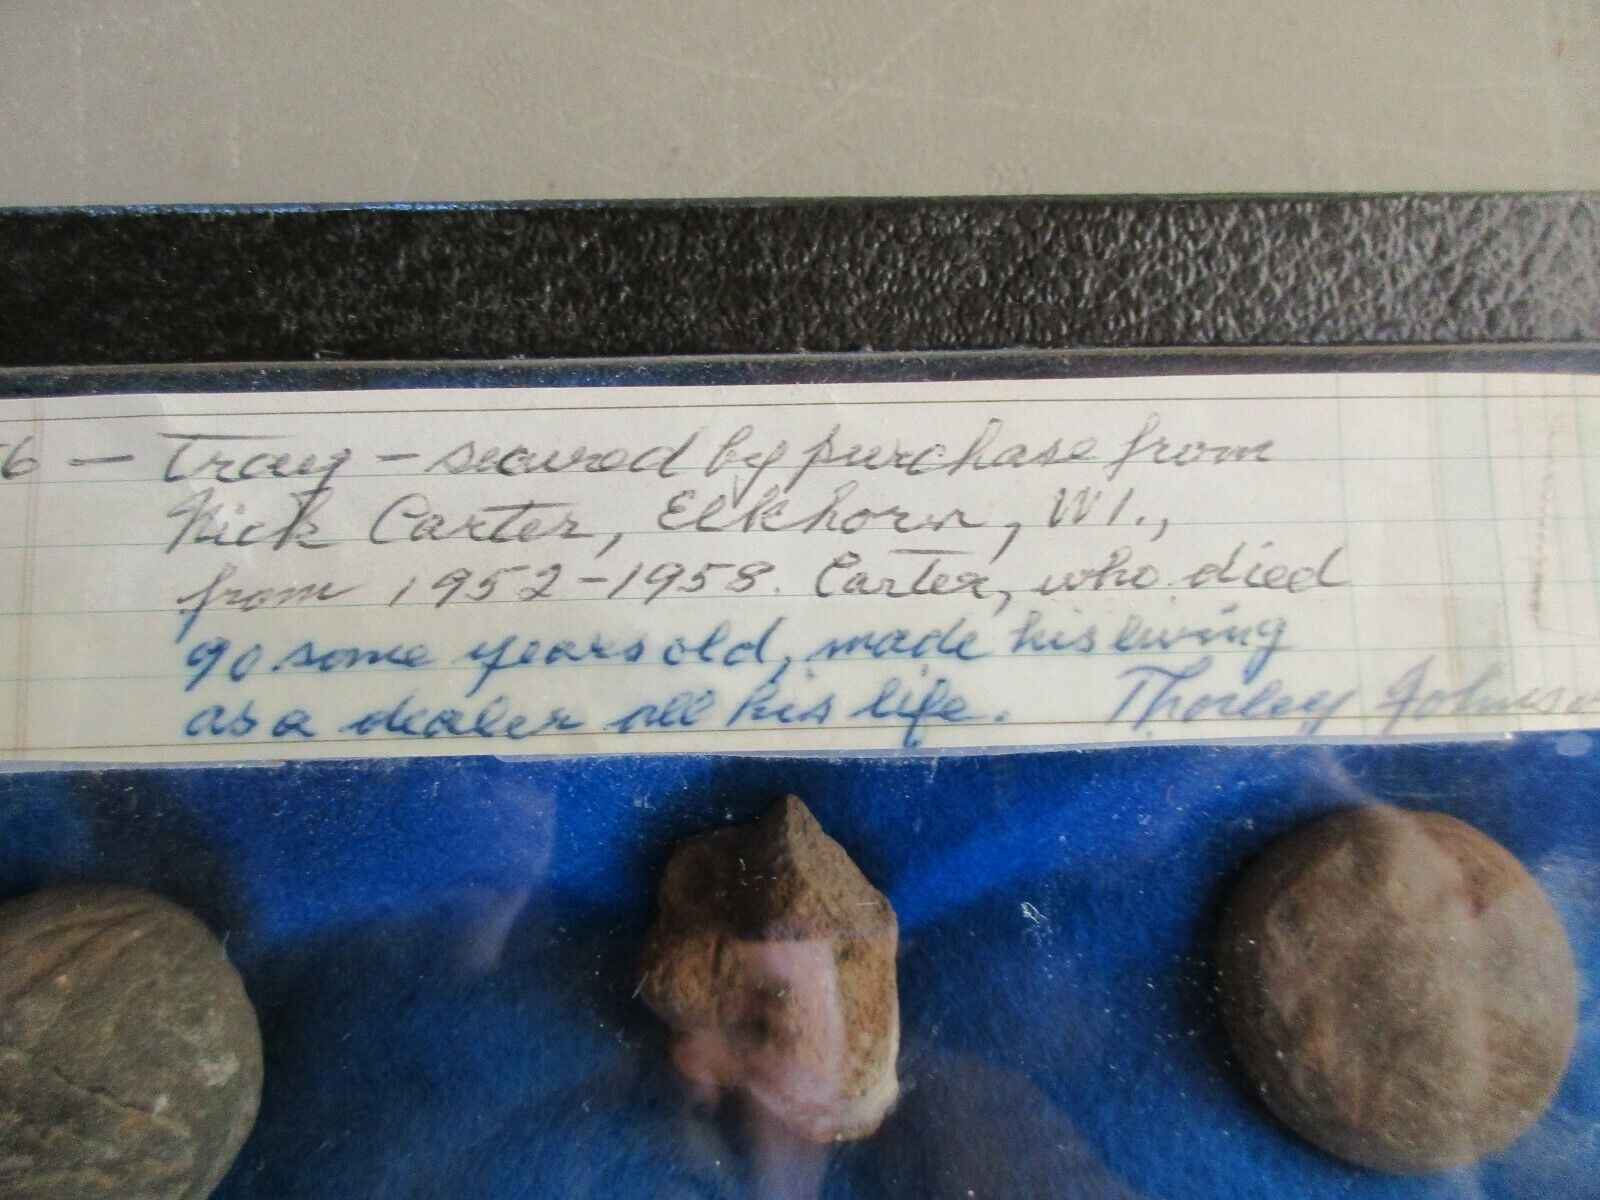 6 — Tray – secured by purchase from
Nick Carter, Elkhorn, WI.,
from 1952–1958. Carter, who died
90 some years old, made his living
as a dealer all his life. Thorley Johnso